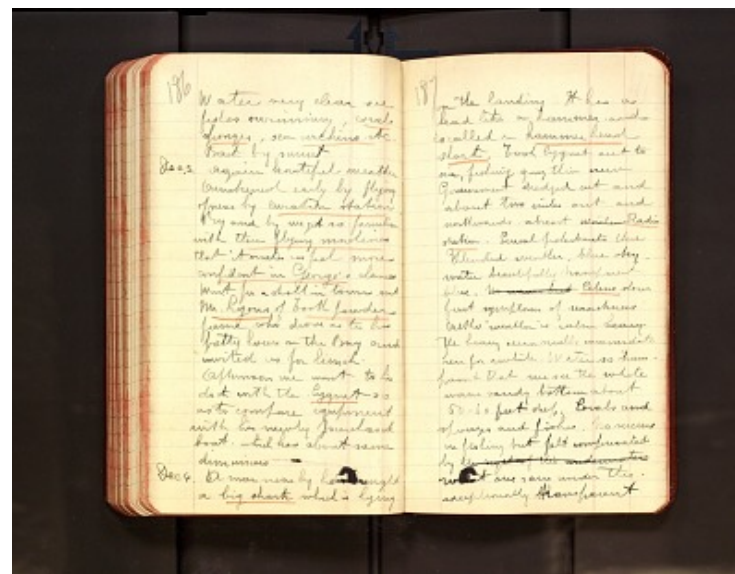 186
Water very clear see
fishes swimming, corals
sponges, sea urchins etc.
Back by sunset
Dec 3. Again beautiful weather
Awakened early by flying
of near by aviation station
Try and by went so familiar
with these flying machines
that it makes us feel more
confident in George's chances
Went for a stroll in town met
Mr. Lyons of Tooth powder
fame who drove us to his
pretty house on the Bay and
invited us for lunch.
Afternoon we went to his
dock with the Cygnet so
as to compare equipment
with his newly purchased
boat which has about same
dimensions
Dec 4. A man near by has caught
a big shark which is lying
187
on the landing It has a
head like a hammer and
is called a hammer head
shark. Took Cygnet out to
sea, fishing
Government dredged cut and
about two miles out and
northwards abreast Radio
station. Several
weather, blue sky
water beautifully transparent
blue. Celeus shows
first symptoms of
the heavy
here for awhile. Water so trans-
parent that we see the whole
sandy bottom about
50-60 feet deep, Corals and
sponges and fishes.
in fishing but felt compensated
by the sight of the underwater
what we saw under this
exceptionally transparent